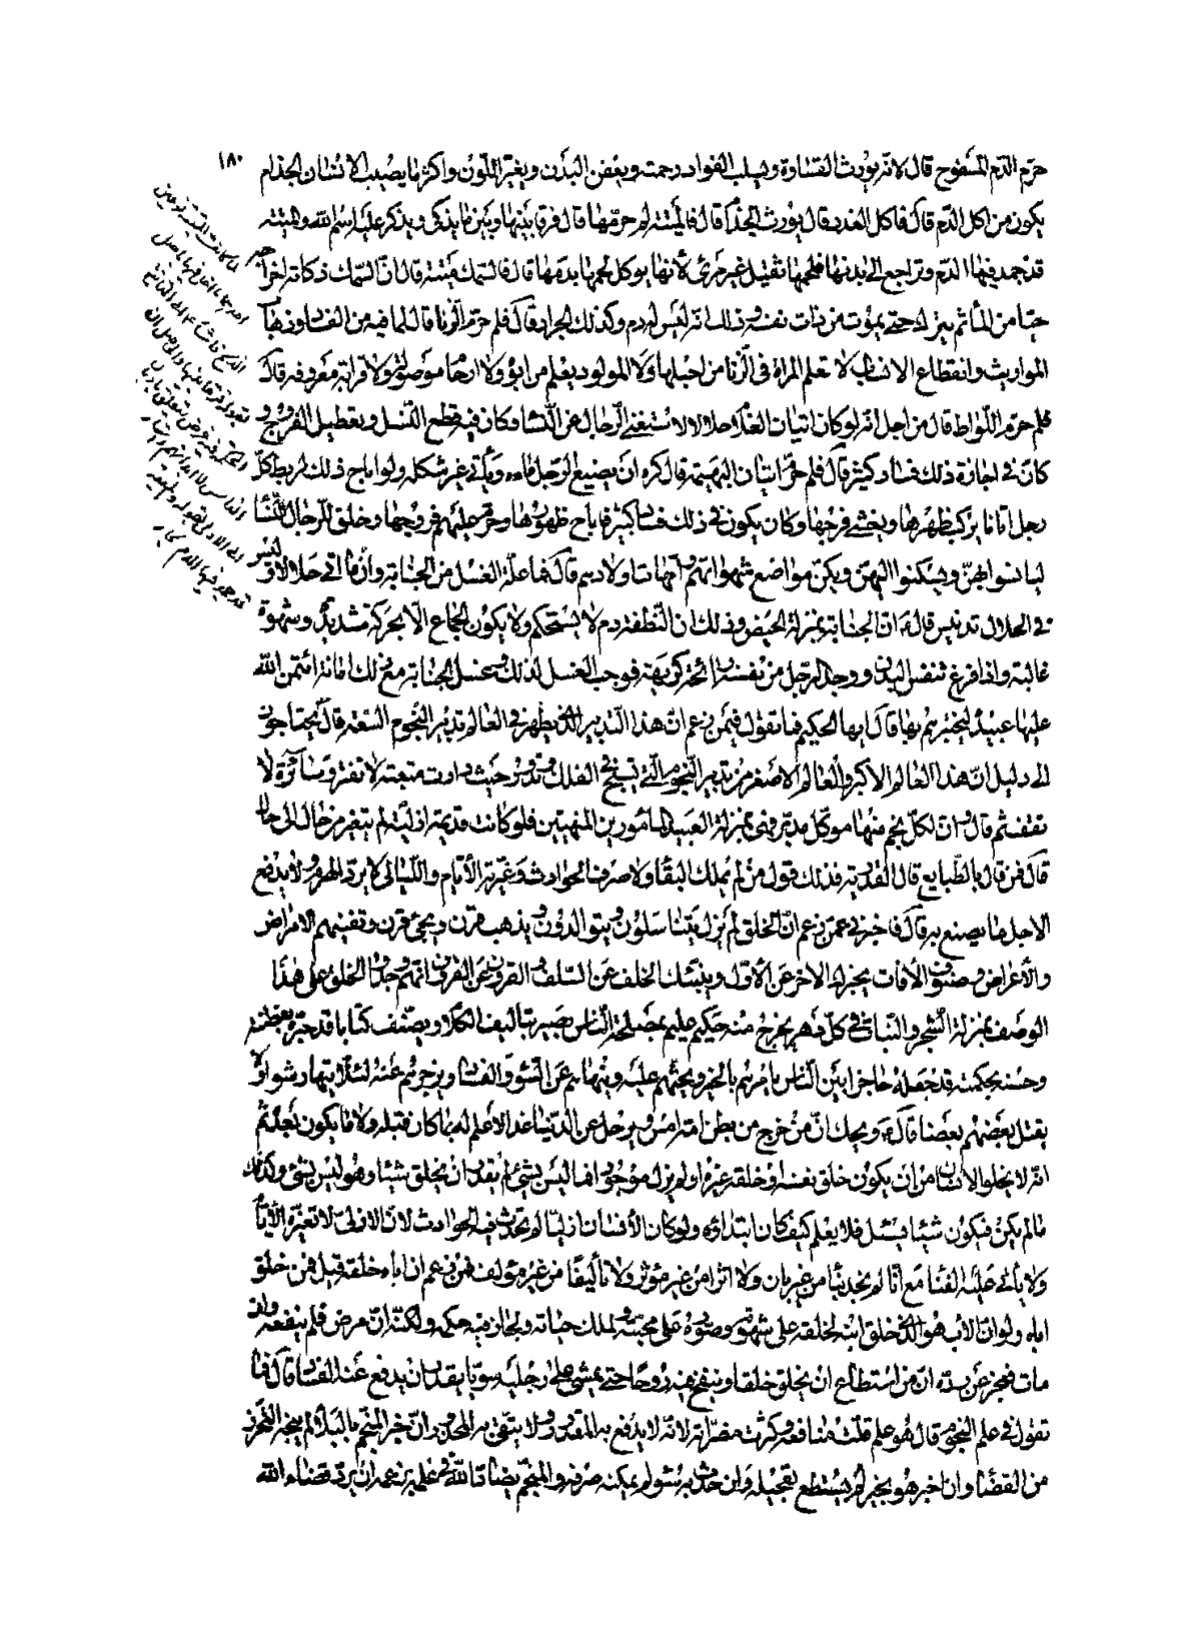 ١٨٠
حرّم الدّم المسفوح قال لانّه يورث القساوة ويسلب الفواد رحمته ويعفن البدن ويغيّر اللّون واكثر ما يصيب الانسان الجذام
يكون من اكل الدّم قال فاكل الغدد قال يورث الجذام قال فالميتة لم حرّمها قال فرق بينها وبين ما يذكى ويذكر عليه اسم الله والميتة
قد جمد فيها الدّم وتراجع الى بدنها فلحمها ثقيل غير مرئ لأنها يوكل لحمها بدمها قال فالسّمك ميتة قال انّ السّمك ذكاته اخراجه
حيّا من الماء ثم يترك حتى يموت من ذات نفسه وذلك انه ليس له دم وكذلك الجراد قال فلم حرّم الزنا قال لما فيه من الفساد وذهاب
المواريث وانقطاع الانساب لا تعلم المرأة في الزّنا من احبلها ولا المولود يعلم من ابوه ولا ارحام موصولة ولا قرابة معروفة قال
فلم حرّم اللّواط قال من اجل انّه لو كان اتيان الغلام حلالا لاستغنى الرّجال عن النّساء وكان فيه قطع النّسل وتعطيل الفروج و
كان في اجازة ذلك فساد كثير قال فلم حرّم اتيان البهيمة قال كره ان يضيع الرّجل ماءه ويأتي غير شكله ولو اباح ذلك لربط كلّ
رجل اتانا يركب ظهرها ويغشى فرجها وكان يكون في ذلك فساد كثير فاباح ظهورها وحرّم عليهم فروجها وخلق للرّجال النّساء
ليأنسوا بهنّ ويسكنوا اليهنّ ويكنّ مواضع شهواتهم وامّهات اولادهم قال فما علّة الغسل من الجنابة وانّما اتى حلالا وليس
في الحلال تدنيس قال ع انّ الجنابة بمنزلة الحيض وذلك ان النّطفة دم لا يستحكم ولا يكون الجماع الّا بحركة شديدة وشهوة
غالبة واذا فرغ تنفس البدن ووجد الرّجل من نفسه رائحة كريهة فوجب الغسل لذلك وغسل الجنابة مع ذلك امانة ائتمن الله
عليها عبيده ليختبرهم بها قال ايها الحكيم فما تقول فيمن زعم انّ هذا التّدبير الذي يظهر في العالم تدبير النّجوم السّبعة قال يحتاجون
الى دليل انّ هذا العالم الاكبر والعالم الاصغر من تدبير النّجوم التي تسبح في الفلك وتدور حيث دارت متعبة لا تفتر وسائرة لا
تقف ثم قال وان لكلّ نجم منها موكّل مدبّر فهي بمنزلة العبيد المأمورين المنهيّين فلو كانت قديمة ازليّة لم تتغيّر من حال الى حال
قال فمن قال بالطّبايع قال القدرية فذلك قول من لم يملك البقاء ولا صرف الحوادث وغيّرته الأيّام واللّيالي لا يردّ الهرم ولا يدفع
الاجل ما يصنع به قال فاخبرني عمّن زعم انّ الخلق لم يزل يتناسلون ويتوالدون ويذهب قرن ويجئ قرن وتفنيهم الامراض
والأعراض وصنوف الأفات يخبرك الاخر عن الأوّل وينبئك الخلف عن السّلف والقرون عن القرون انّهم وجدوا الخلق على هذا
الوصف بمنزلة الشّجر والنّبات في كلّ دهر يخرج منه حكيم عليم بمصلحة النّاس بصير بتأليف الكلام ويصنّف كتابا قد حبّره بفطنته
وحسّنه بحكمته قد جعله حاجزا بين النّاس يأمرهم بالخير ويحثّهم عليه وينهاهم عن السّوء والفساد ويزجرهم عنه لئلّا يتهارشوا ولا
يقتل بعضهم بعضا قال ع ويحك انّ من خرج من بطن امّه امس ويرحل عن الدّنيا غدا لاعلم له بما كان قبله ولا ما يكون بعده ثمّ
انّه لا يخلو الانسان من ان يكون خلق نفسه او خلقه غيره او لم يزل موجودا فما ليس بشئ لم يقدر ان يخلق شيئا وهو ليس بشئ وكذلك
ما لم يكن فيكون شيئا يسئل فلا يعلم كيف كان ابتداؤه ولو كان الأنسان ازليّا لم تحدث فيه الحوادث لانّ الازلى لا تغيّره الأيّام
ولا يأتي عليه الفناء مع انّا لم نجد بناء من غير بان ولا اثرا من غير مؤثر ولا تأليفا من غير مؤلف فمن زعم ان اباه خلقه قيل فمن خلق
اباه ولو انّ الأب هو الذي خلق ابنه لخلقه على شهوته وصوّره على محبّته ولملك حياته ولجاز فيه حكمه ولكنّه ان مرض فلم ينفعه وان
مات فعجز عن ردّه انّ من استطاع ان يخلق خلقا وينفخ فيه روحا حتى يمشي على رجليه سويّا يقدر ان يدفع عنه الفساد قال فما
تقول في علم النجوم قال هو علم قلّت منافعه وكثرت مضرّاته لانّه لا يدفع به المقدور ولا يتّقى به المحذور انّ خبر المنجّم بالبلاء لم ينجه التحرّز
من القضاء وان اخبر هو بخير لم يستطع تعجيله وان حدث به سوء لم يمكنه صرفه والمنجّم يضادّ الله في علمه بزعمه ان يردّ قضاء الله